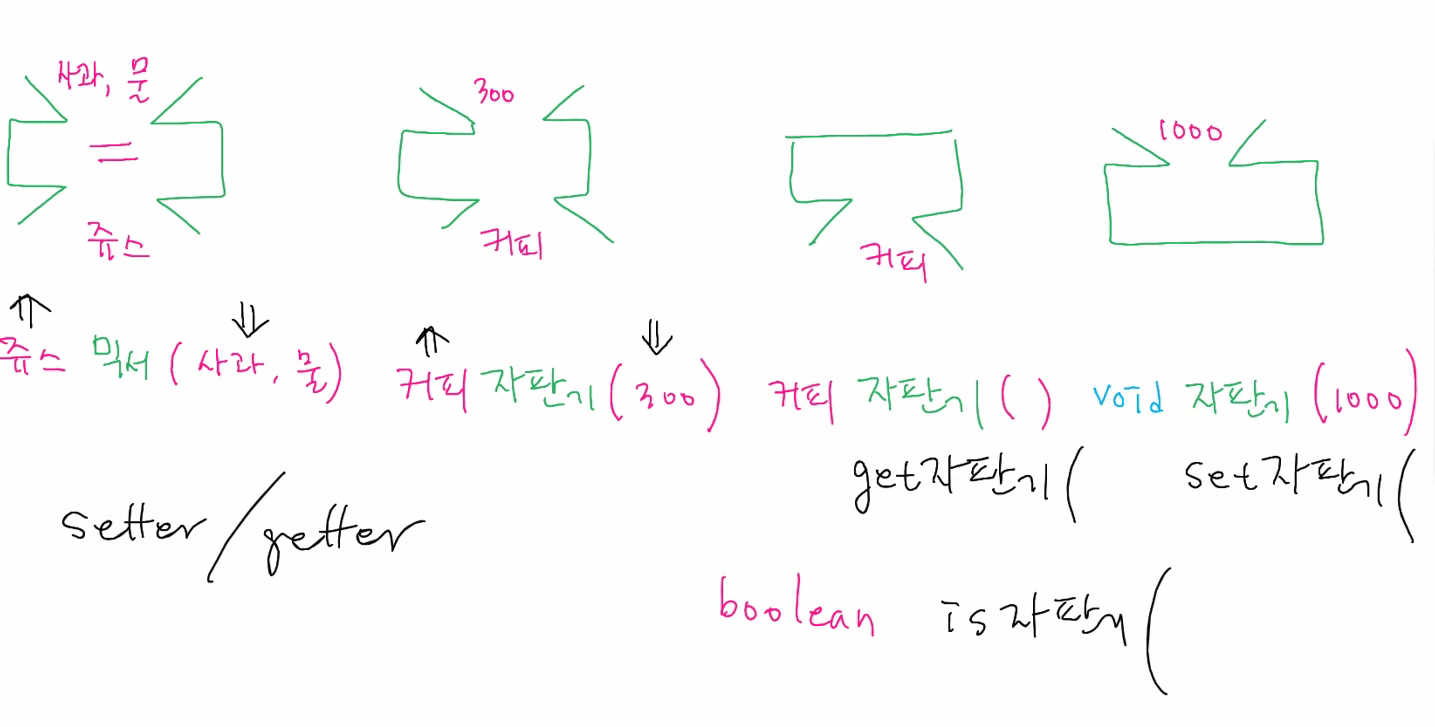 사과, 물
300
1000
쥬스
커피
커피
쥬스 믹서 (사과, 물)
커피 자판기 (300)
커피 자판기 ( )
void 자판기 (1000)
get자판기 (
set자판기 (
setter / getter
boolean is자판기 (